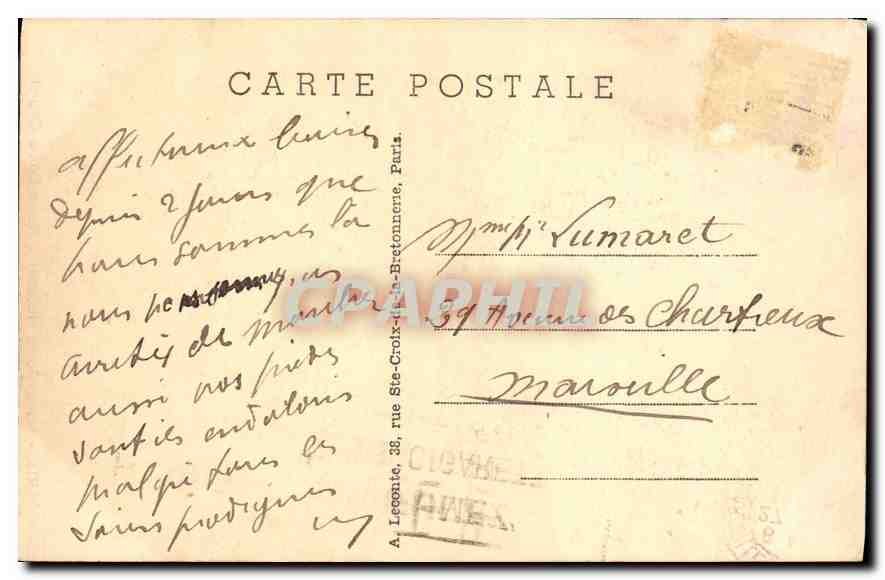 CARTE POSTALE
affectueux baisers
depuis 2 jours que
nous sommes là
nous ne sommes pas
arretés de marcher
aussi nos pieds
sont ils endoloris
malgré tous les
soins prodigués
A. Leconte, 38, rue Ste-Croix-de-la-Bretonnerie, Paris.
Mme Lumaret
39 Avenue des Chartreux
Marseille
CPAPHIL